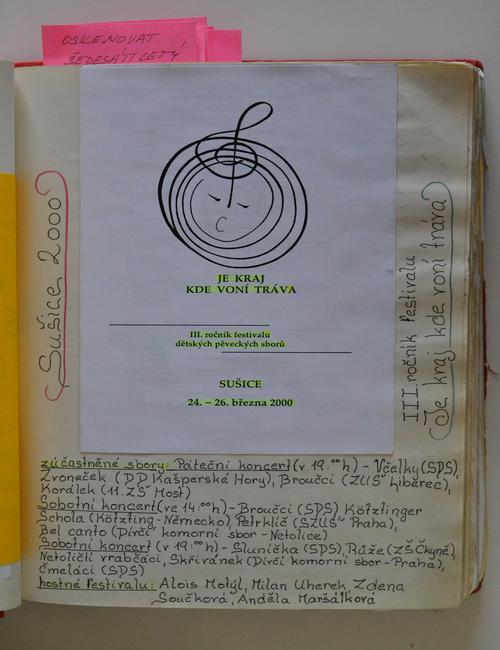 OSKENOVAT
ŠEDESÁTILETÝ
Sušice 2000
JE KRAJ
KDE VONÍ TRÁVA
III. ročník festivalu
dětských pěveckých sborů
SUŠICE
24. – 26. března 2000
III. ročník festivalu
Je kraj kde voní tráva
zúčastněné sbory: Páteční koncert (v 19.⁰⁰h) - Včelky (SPS),
Zvoneček (DD Kašperské Hory), Broučci (ZUŠ Liberec),
Korálek (11.ZŠ Most)
Sobotní koncert (ve 14.⁰⁰h) - Broučci (SPS) Kötztinger
Schola (Kötzting-Německo), Petrklíč (SZUŠ Praha),
Bel canto (Dívčí komorní sbor - Netolice)
Sobotní koncert (v 19.⁰⁰h) - Sluníčka (SPS), Růže (ZŠ Čkyně),
Netoličtí vrabčáci, Skřivánek (Dívčí komorní sbor - Praha),
Čmeláci (SPS)
hosté festivalu: Alois Motýl, Milan Uherek, Zdena
Součková, Anděla Maršálková